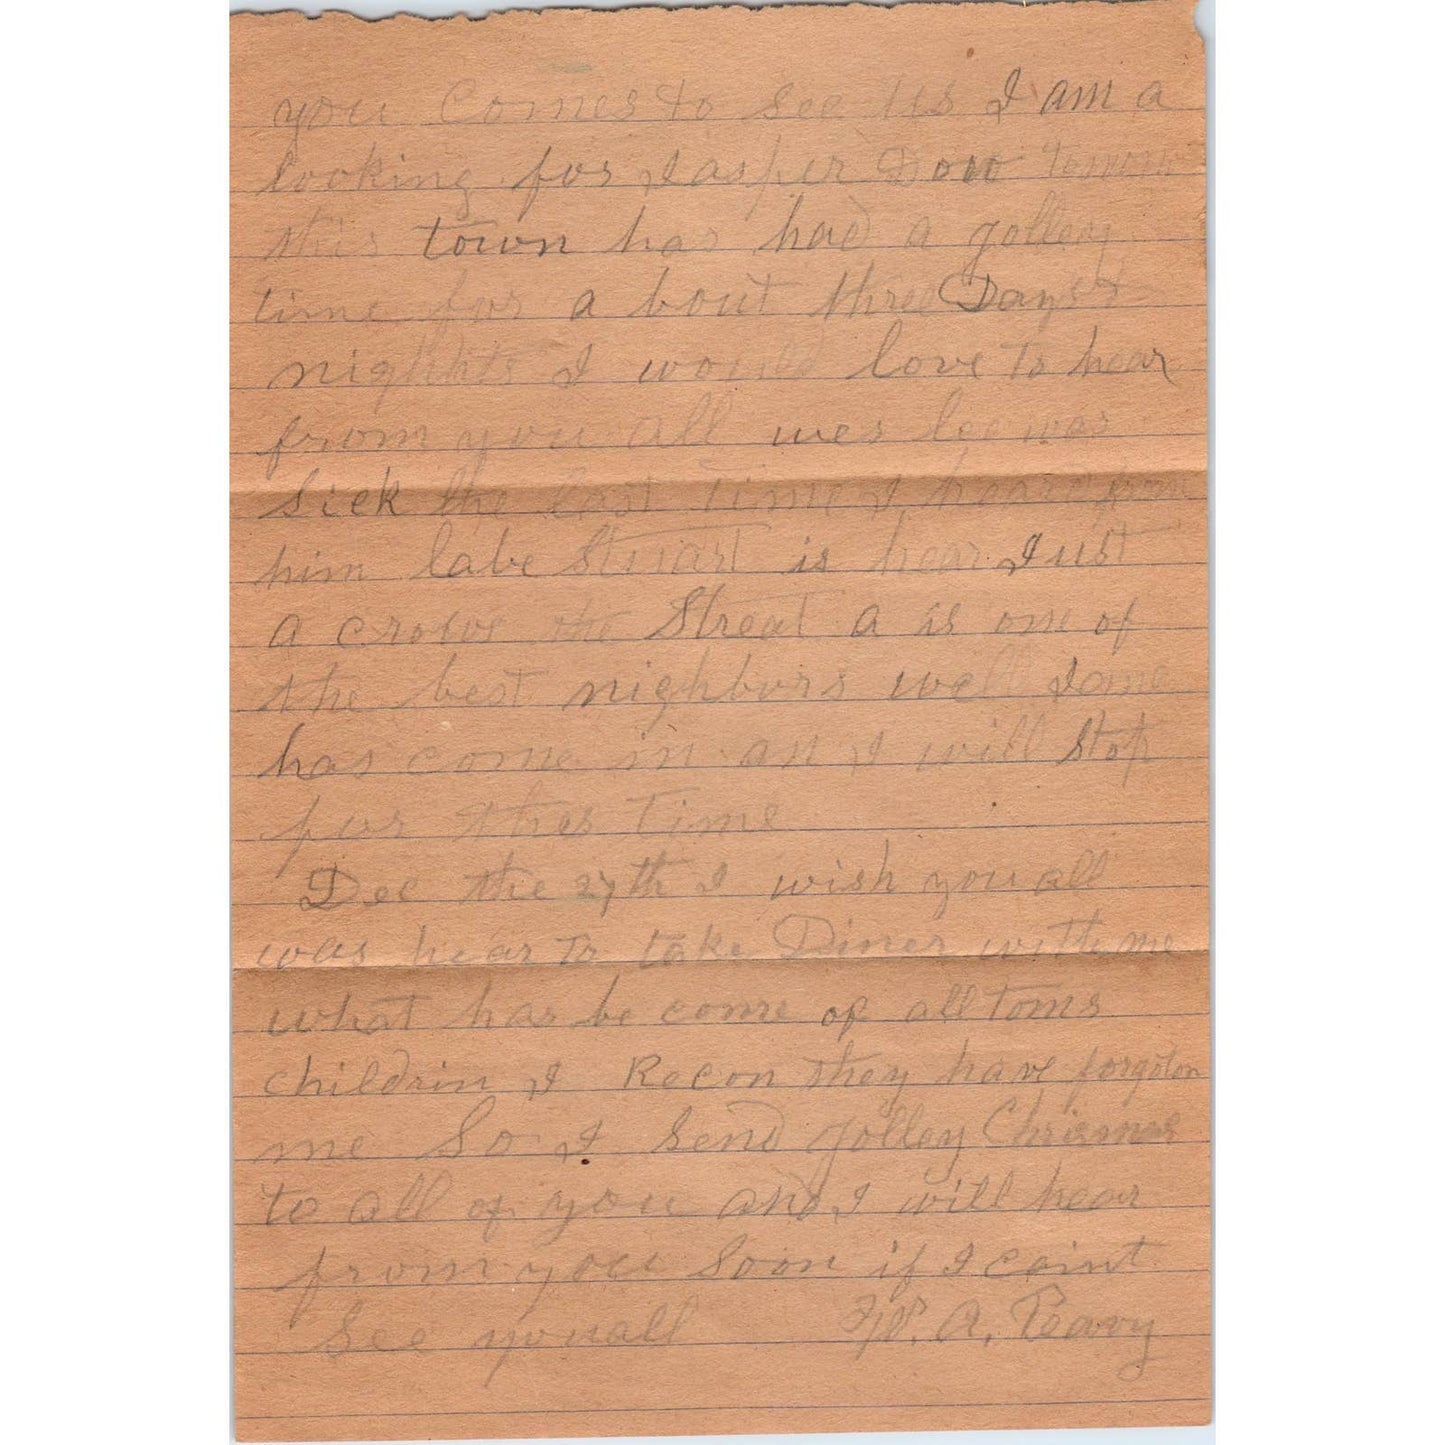 you Comes to see us I am a
looking for Jasper Dow tomorow
this town has had a golley
time for a bout three Days &
nights I would love to hear
from you all wes lee was
sick the last time I heard from
him labe Stuart is hear Just
a cross the Streat a is one of
the best nighburs well Some
has come in an I will stop
fur thes time
Dec the 27th I wish you all
was hear to take Diner with me
what has be come of all toms
childrin I Recon they have forgoton
me So I send golley Chrismas
to all of you and I will hear
from you Soon if I caint
See you all W. A. Peavy